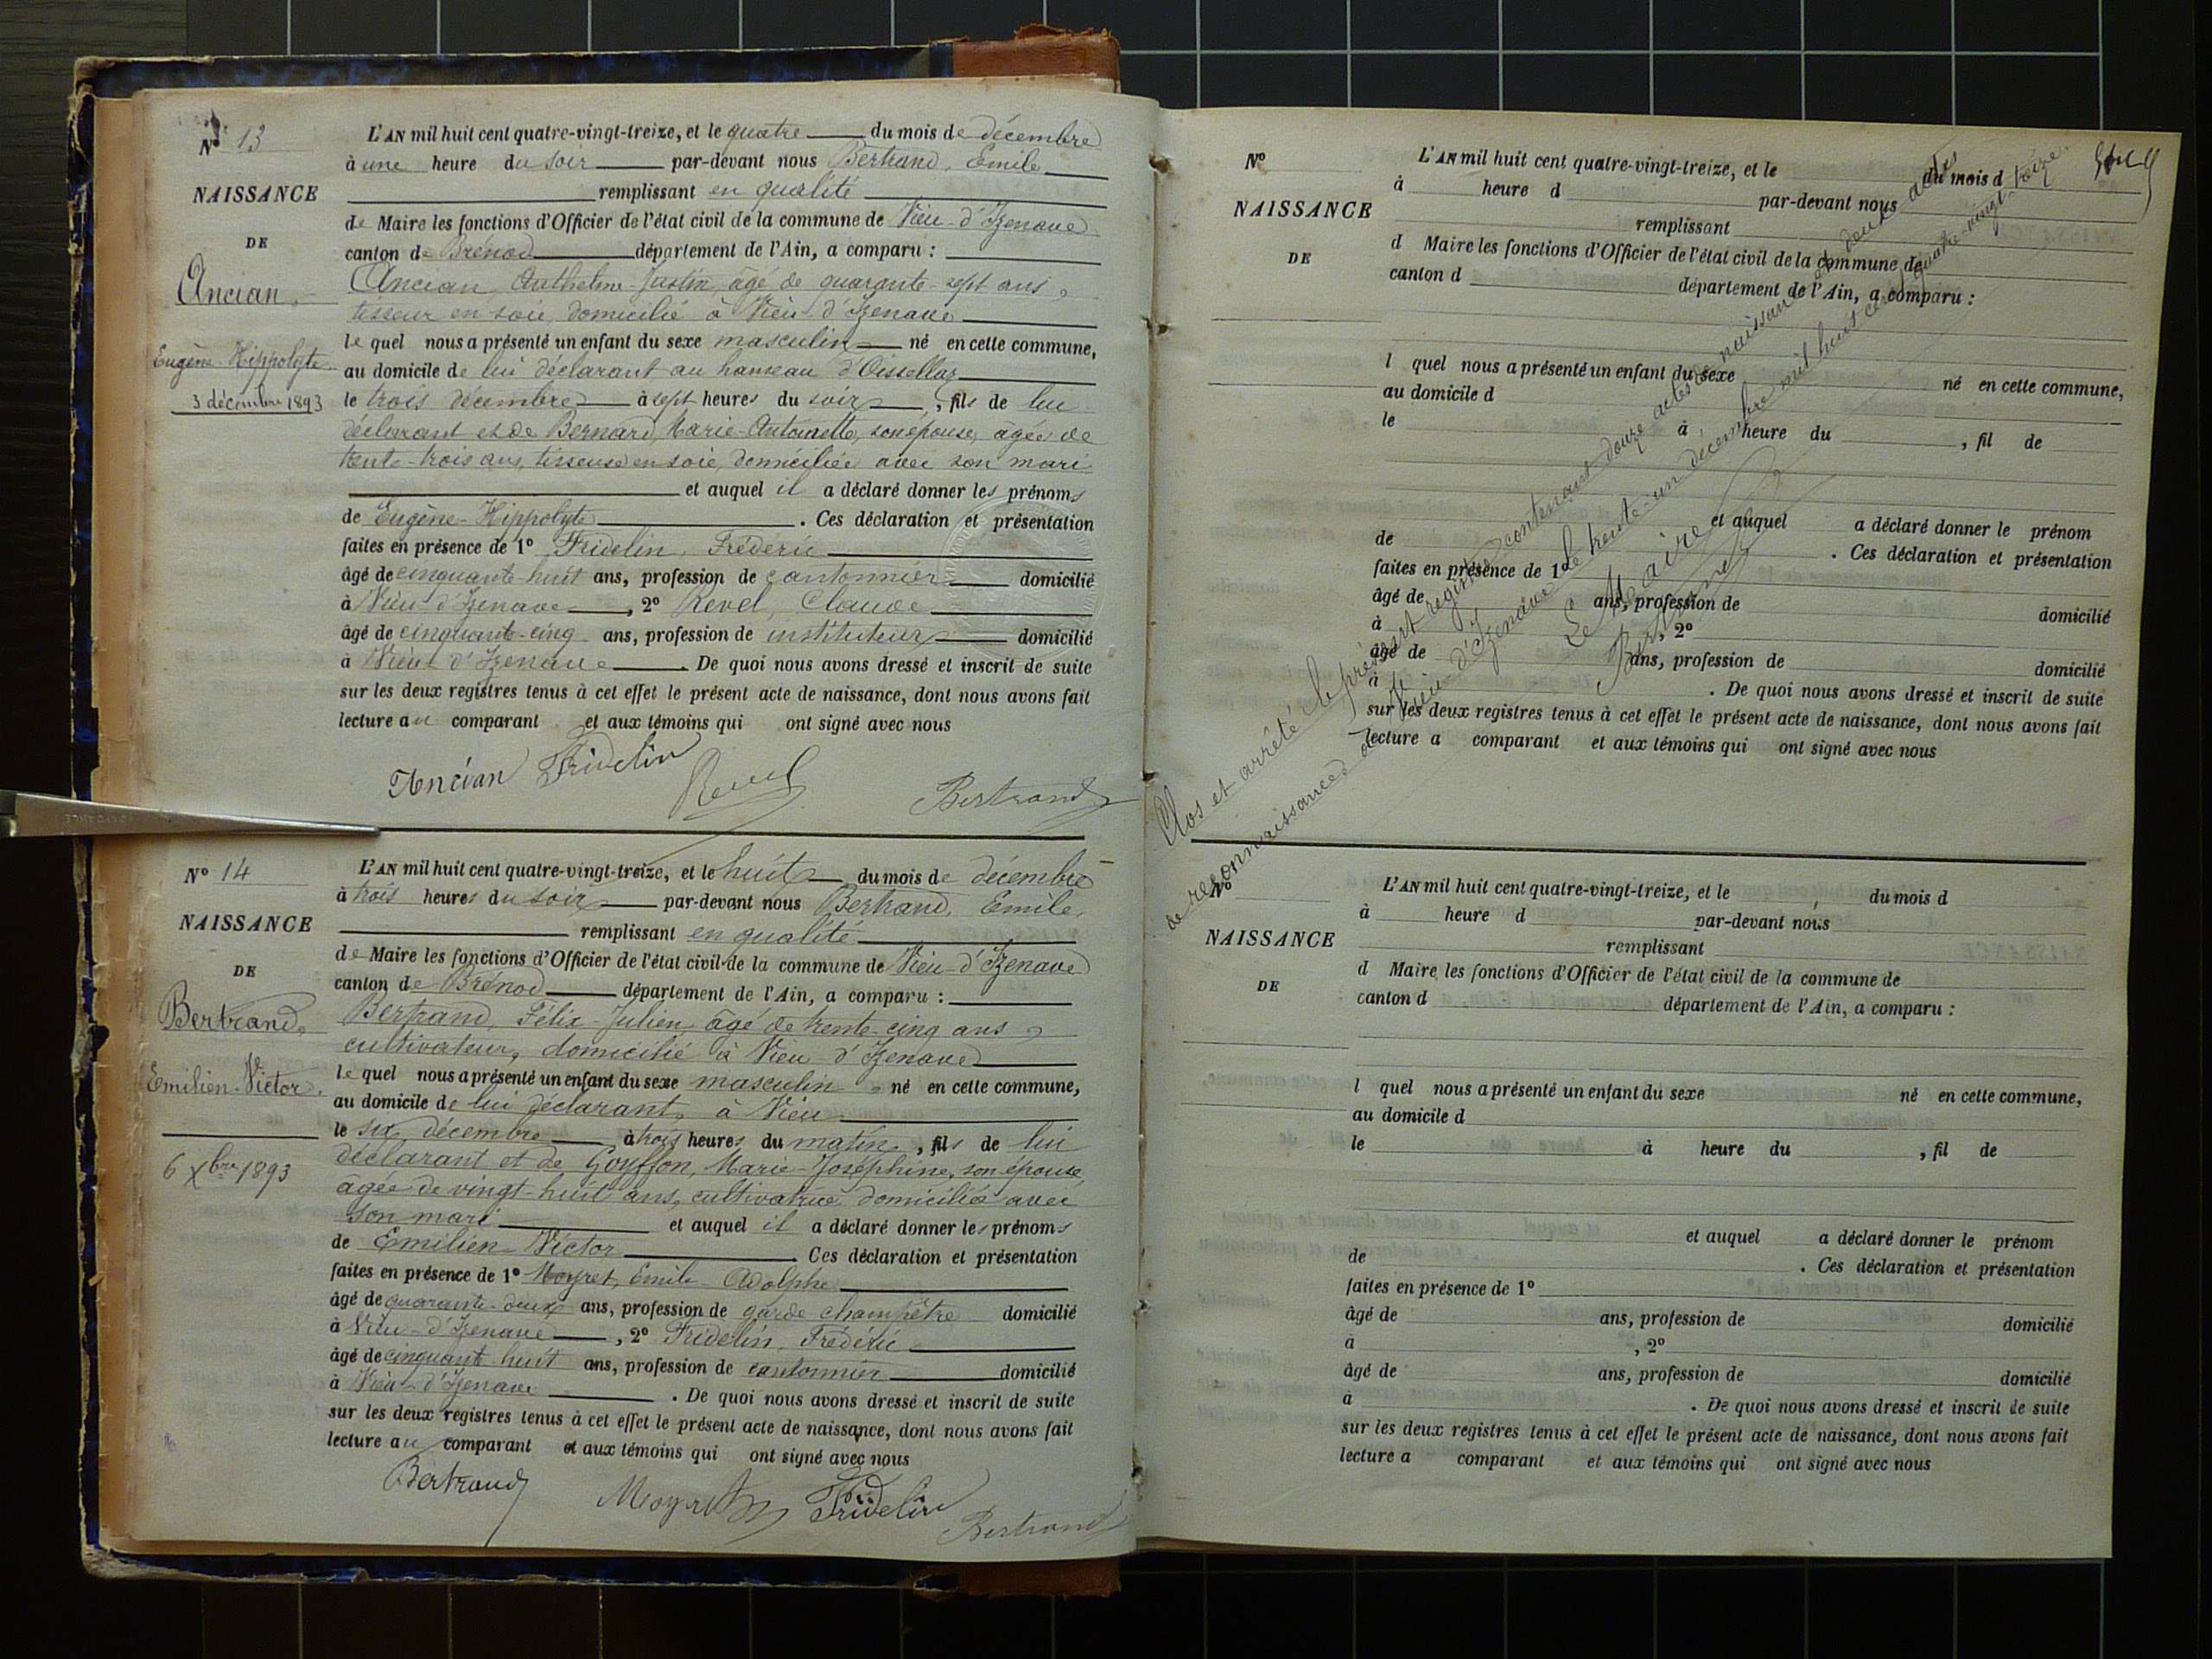 N° 13
NAISSANCE
DE
Ancian
Eugène-Hippolyte
3 décembre 1893
L'AN mil huit cent quatre-vingt-treize, et le quatre du mois de décembre
à une heure du soir par-devant nous Bertrand, Emile
remplissant en qualité
de Maire les fonctions d'Officier de l'état civil de la commune de Vieu-d'Izenave
canton de Brénod département de l'Ain, a comparu :
Ancian Anthelme-Justin, âgé de quarante-sept ans,
tisseur en soie, domicilié à Vieu-d'Izenave
lequel nous a présenté un enfant du sexe masculin né en cette commune,
au domicile de lui déclarant au hameau d'Oissellaz
le trois décembre à sept heures du soir, fils de lui
déclarant et de Bernard, Marie-Antoinette, son épouse, âgée de
trente-trois ans, tisseuse en soie, domiciliée avec son mari
et auquel il a déclaré donner les prénoms
de Eugène-Hippolyte. Ces déclaration et présentation
faites en présence de 1° Fridelin, Frédéric
âgé de cinquante-huit ans, profession de cantonnier domicilié
à Vieu-d'Izenave, 2° Revel, Claude
âgé de cinquante-cinq ans, profession de instituteur domicilié
à Vieu-d'Izenave. De quoi nous avons dressé et inscrit de suite
sur les deux registres tenus à cet effet le présent acte de naissance, dont nous avons fait
lecture au comparant et aux témoins qui ont signé avec nous
Ancian Fridelin Revel Bertrand
N° 14
NAISSANCE
DE
Bertrand,
Emilien-Victor.
6 Xbre 1893
L'AN mil huit cent quatre-vingt-treize, et le huit du mois de décembre
à trois heures du soir par-devant nous Bertrand, Emile,
remplissant en qualité
de Maire les fonctions d'Officier de l'état civil de la commune de Vieu-d'Izenave
canton de Brénod département de l'Ain, a comparu :
Bertrand, Félix-Julien, âgé de trente-cinq ans,
cultivateur, domicilié à Vieu-d'Izenave
lequel nous a présenté un enfant du sexe masculin né en cette commune,
au domicile de lui déclarant, à Vieu
le six décembre à trois heures du matin, fils de lui
déclarant et de Goyffon, Marie-Joséphine, son épouse,
âgée de vingt-huit ans, cultivatrice domiciliée avec
son mari et auquel il a déclaré donner les prénoms
de Emilien-Victor Ces déclaration et présentation
faites en présence de 1° Moyret, Emile-Adolphe
âgé de quarante-deux ans, profession de garde champêtre domicilié
à Vieu-d'Izenave, 2° Fridelin, Frédéric
âgé de cinquante huit ans, profession de cantonnier domicilié
à Vieu-d'Izenave. De quoi nous avons dressé et inscrit de suite
sur les deux registres tenus à cet effet le présent acte de naissance, dont nous avons fait
lecture au comparant et aux témoins qui ont signé avec nous
Bertrand Moyret Fridelin Bertrand
N°
NAISSANCE
DE
L'AN mil huit cent quatre-vingt-treize, et le du mois d
à heure d par-devant nous
remplissant
d Maire les fonctions d'Officier de l'état civil de la commune de
canton d département de l'Ain, a comparu :
l quel nous a présenté un enfant du sexe né en cette commune,
au domicile d
le à heure du , fil de
et auquel a déclaré donner le prénom
de . Ces déclaration et présentation
faites en présence de 1°
âgé de ans, profession de domicilié
à , 2°
âgé de ans, profession de domicilié
à . De quoi nous avons dressé et inscrit de suite
sur les deux registres tenus à cet effet le présent acte de naissance, dont nous avons fait
lecture a comparant et aux témoins qui ont signé avec nous
Clos et arrêté le présent registre contenant douze actes de naissance et deux actes
de reconnaissances à Vieu-d'Izenave le trente-un décembre mil huit cent quatre-vingt-treize.
Le Maire
Bertrand
N°
NAISSANCE
DE
L'AN mil huit cent quatre-vingt-treize, et le du mois d
à heure d par-devant nous
remplissant
d Maire les fonctions d'Officier de l'état civil de la commune de
canton d département de l'Ain, a comparu :
l quel nous a présenté un enfant du sexe né en cette commune,
au domicile d
le à heure du , fil de
et auquel a déclaré donner le prénom
de . Ces déclaration et présentation
faites en présence de 1°
âgé de ans, profession de domicilié
à , 2°
âgé de ans, profession de domicilié
à . De quoi nous avons dressé et inscrit de suite
sur les deux registres tenus à cet effet le présent acte de naissance, dont nous avons fait
lecture a comparant et aux témoins qui ont signé avec nous